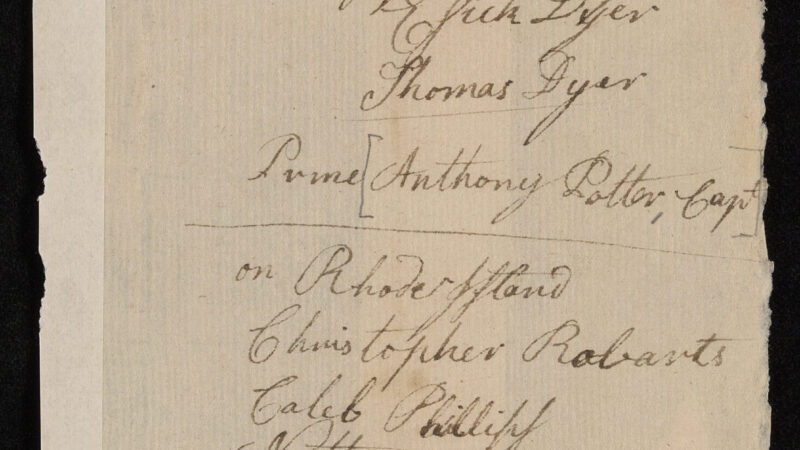 Dyer
Thomas Dyer
Prme [Anthony Potter, Capt]
on Rhode Island
Christopher Robarts
Caleb Phillips